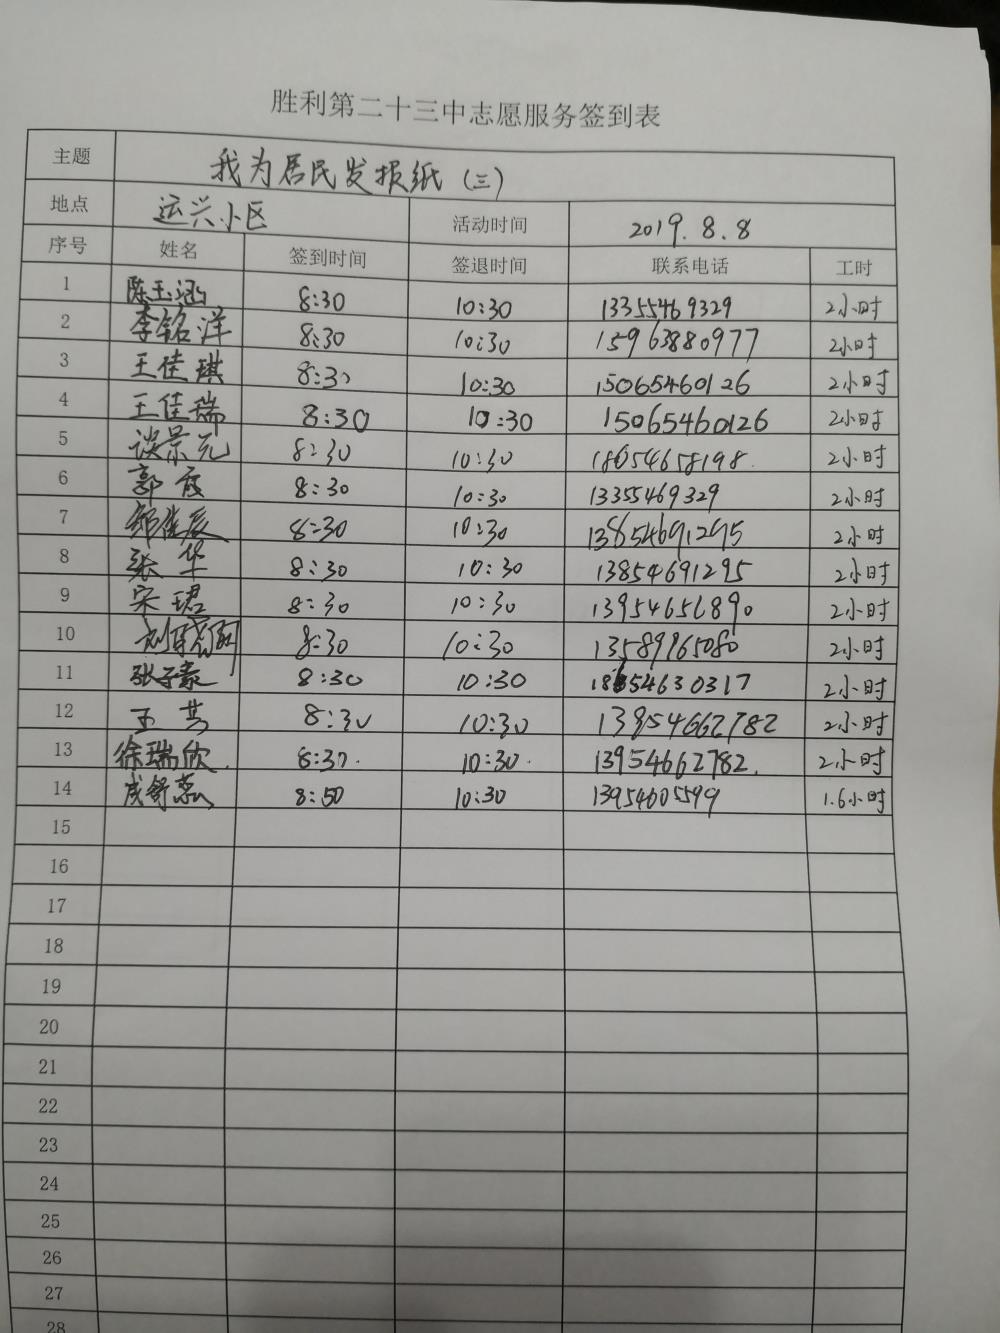 胜利第二十三中志愿服务签到表
主题 我为居民发报纸（三）
地点 运兴小区 活动时间 2019.8.8
序号 姓名 签到时间 签退时间 联系电话 工时
1 陈玉涵 8:30 10:30 13355469329 2小时
2 李铭洋 8:30 10:30 15963880977 2小时
3 王佳琪 8:30 10:30 15065460126 2小时
4 王佳瑞 8:30 10:30 15065460126 2小时
5 谈景元 8:30 10:30 18054658198 2小时
6 郭霞 8:30 10:30 13355469329 2小时
7 8:30 10:30 13854691295 2小时
8 张华 8:30 10:30 13854691295 2小时
9 宋珺 8:30 10:30 13954656890 2小时
10 8:30 10:30 13589965080 2小时
11 张子豪 8:30 10:30 2小时
12 王芸 8:30 10:30 13954662782 2小时
13 徐瑞欣. 8:30. 10:30. 13954662782. 2小时
14 成舒蕊 8:50 10:30 13954605599 1.6小时
15
16
17
18
19
20
21
22
23
24
25
26
27
28